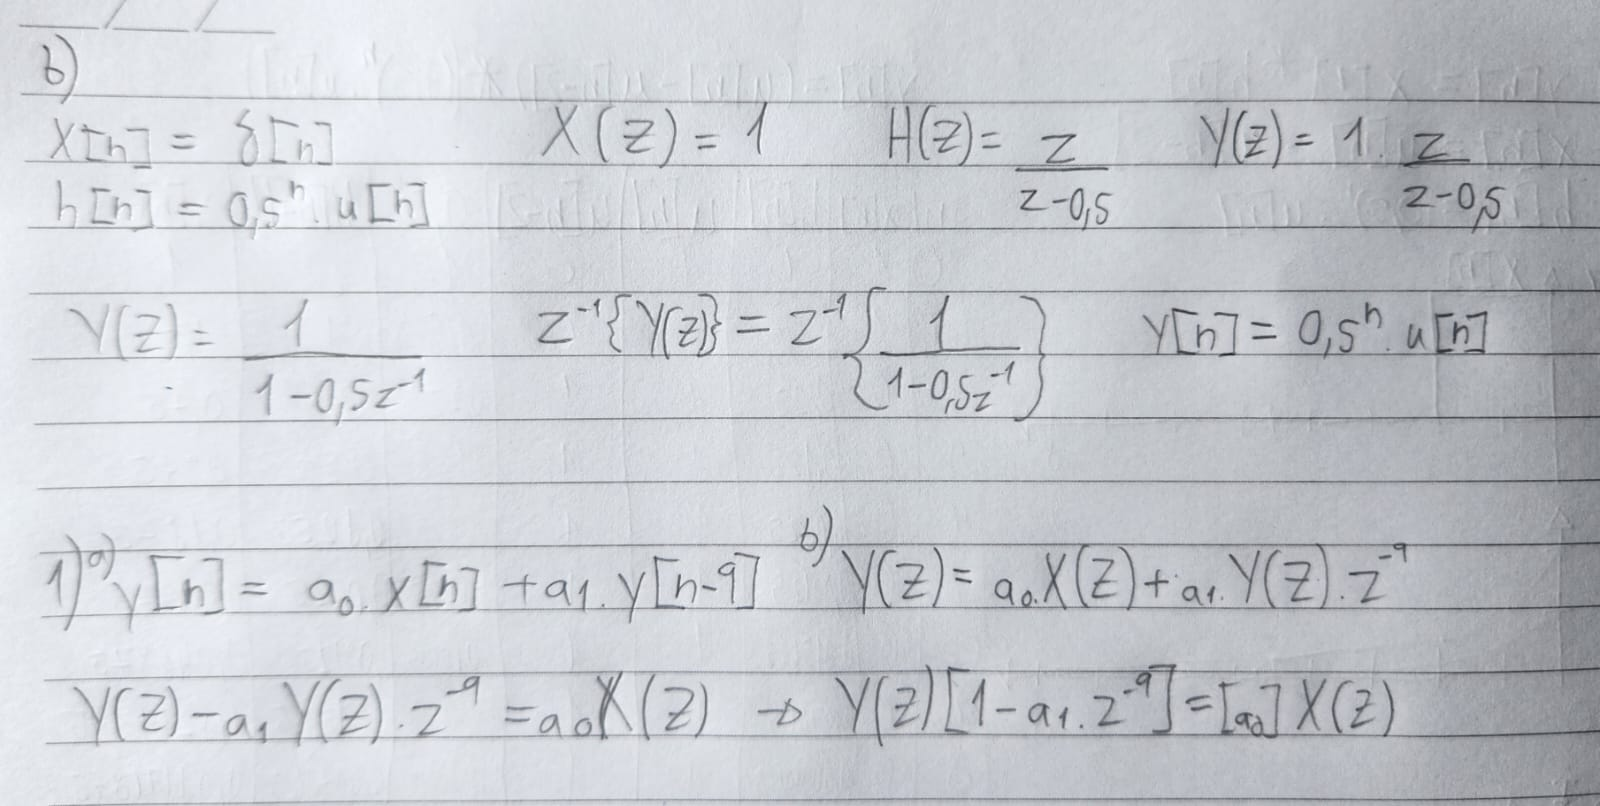 b)
x[n] = δ[n] X(z) = 1 H(z) = z/(z-0,5) Y(z) = 1 . z/(z-0,5)
h[n] = 0,5^n . u[n]
Y(z) = 1/(1-0,5z^-1) Z^-1{Y(z)} = Z^-1{1/(1-0,5z^-1)} y[n] = 0,5^n . u[n]
1) a) y[n] = a₀ . x[n] + a₁ . y[n-9] b) Y(z) = a₀ . X(z) + a₁ . Y(z) . z^-9
Y(z) - a₁ Y(z) . z^-9 = a₀ X(z) → Y(z)[1 - a₁ . z^-9] = [a₀] X(z)